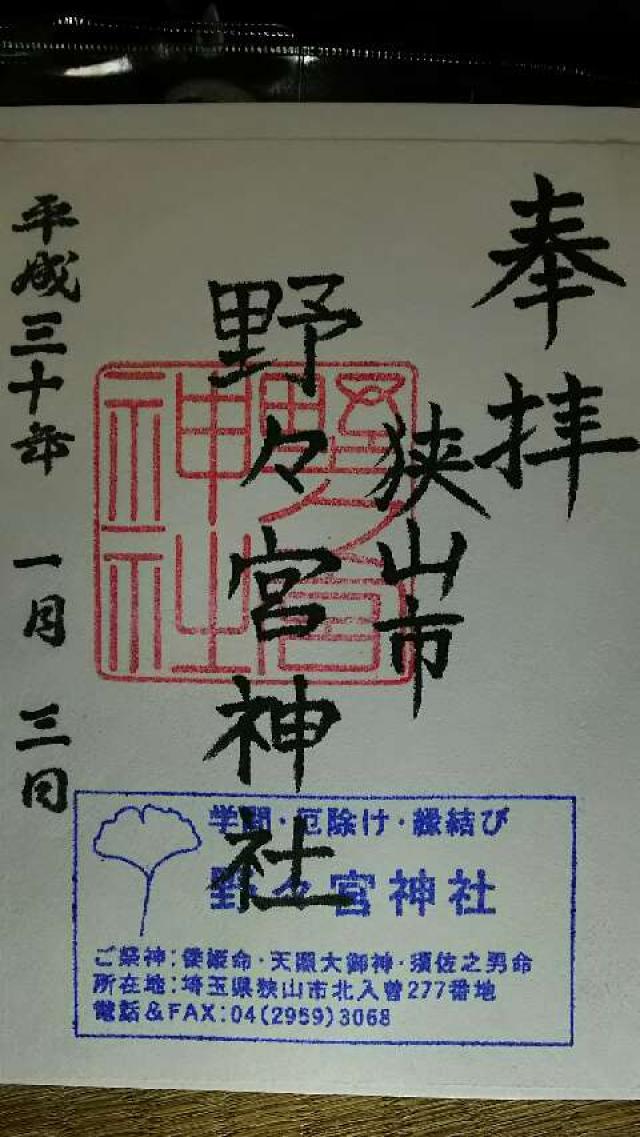 奉拝
狭山市
野々宮神社
野々宮
神社
平成三十年 一月 三日
学問・厄除け・縁結び
野々宮神社
ご祭神:倭姫命・天照大御神・須佐之男命
所在地:埼玉県狭山市北入曽277番地
電話&FAX:04(2959)3068